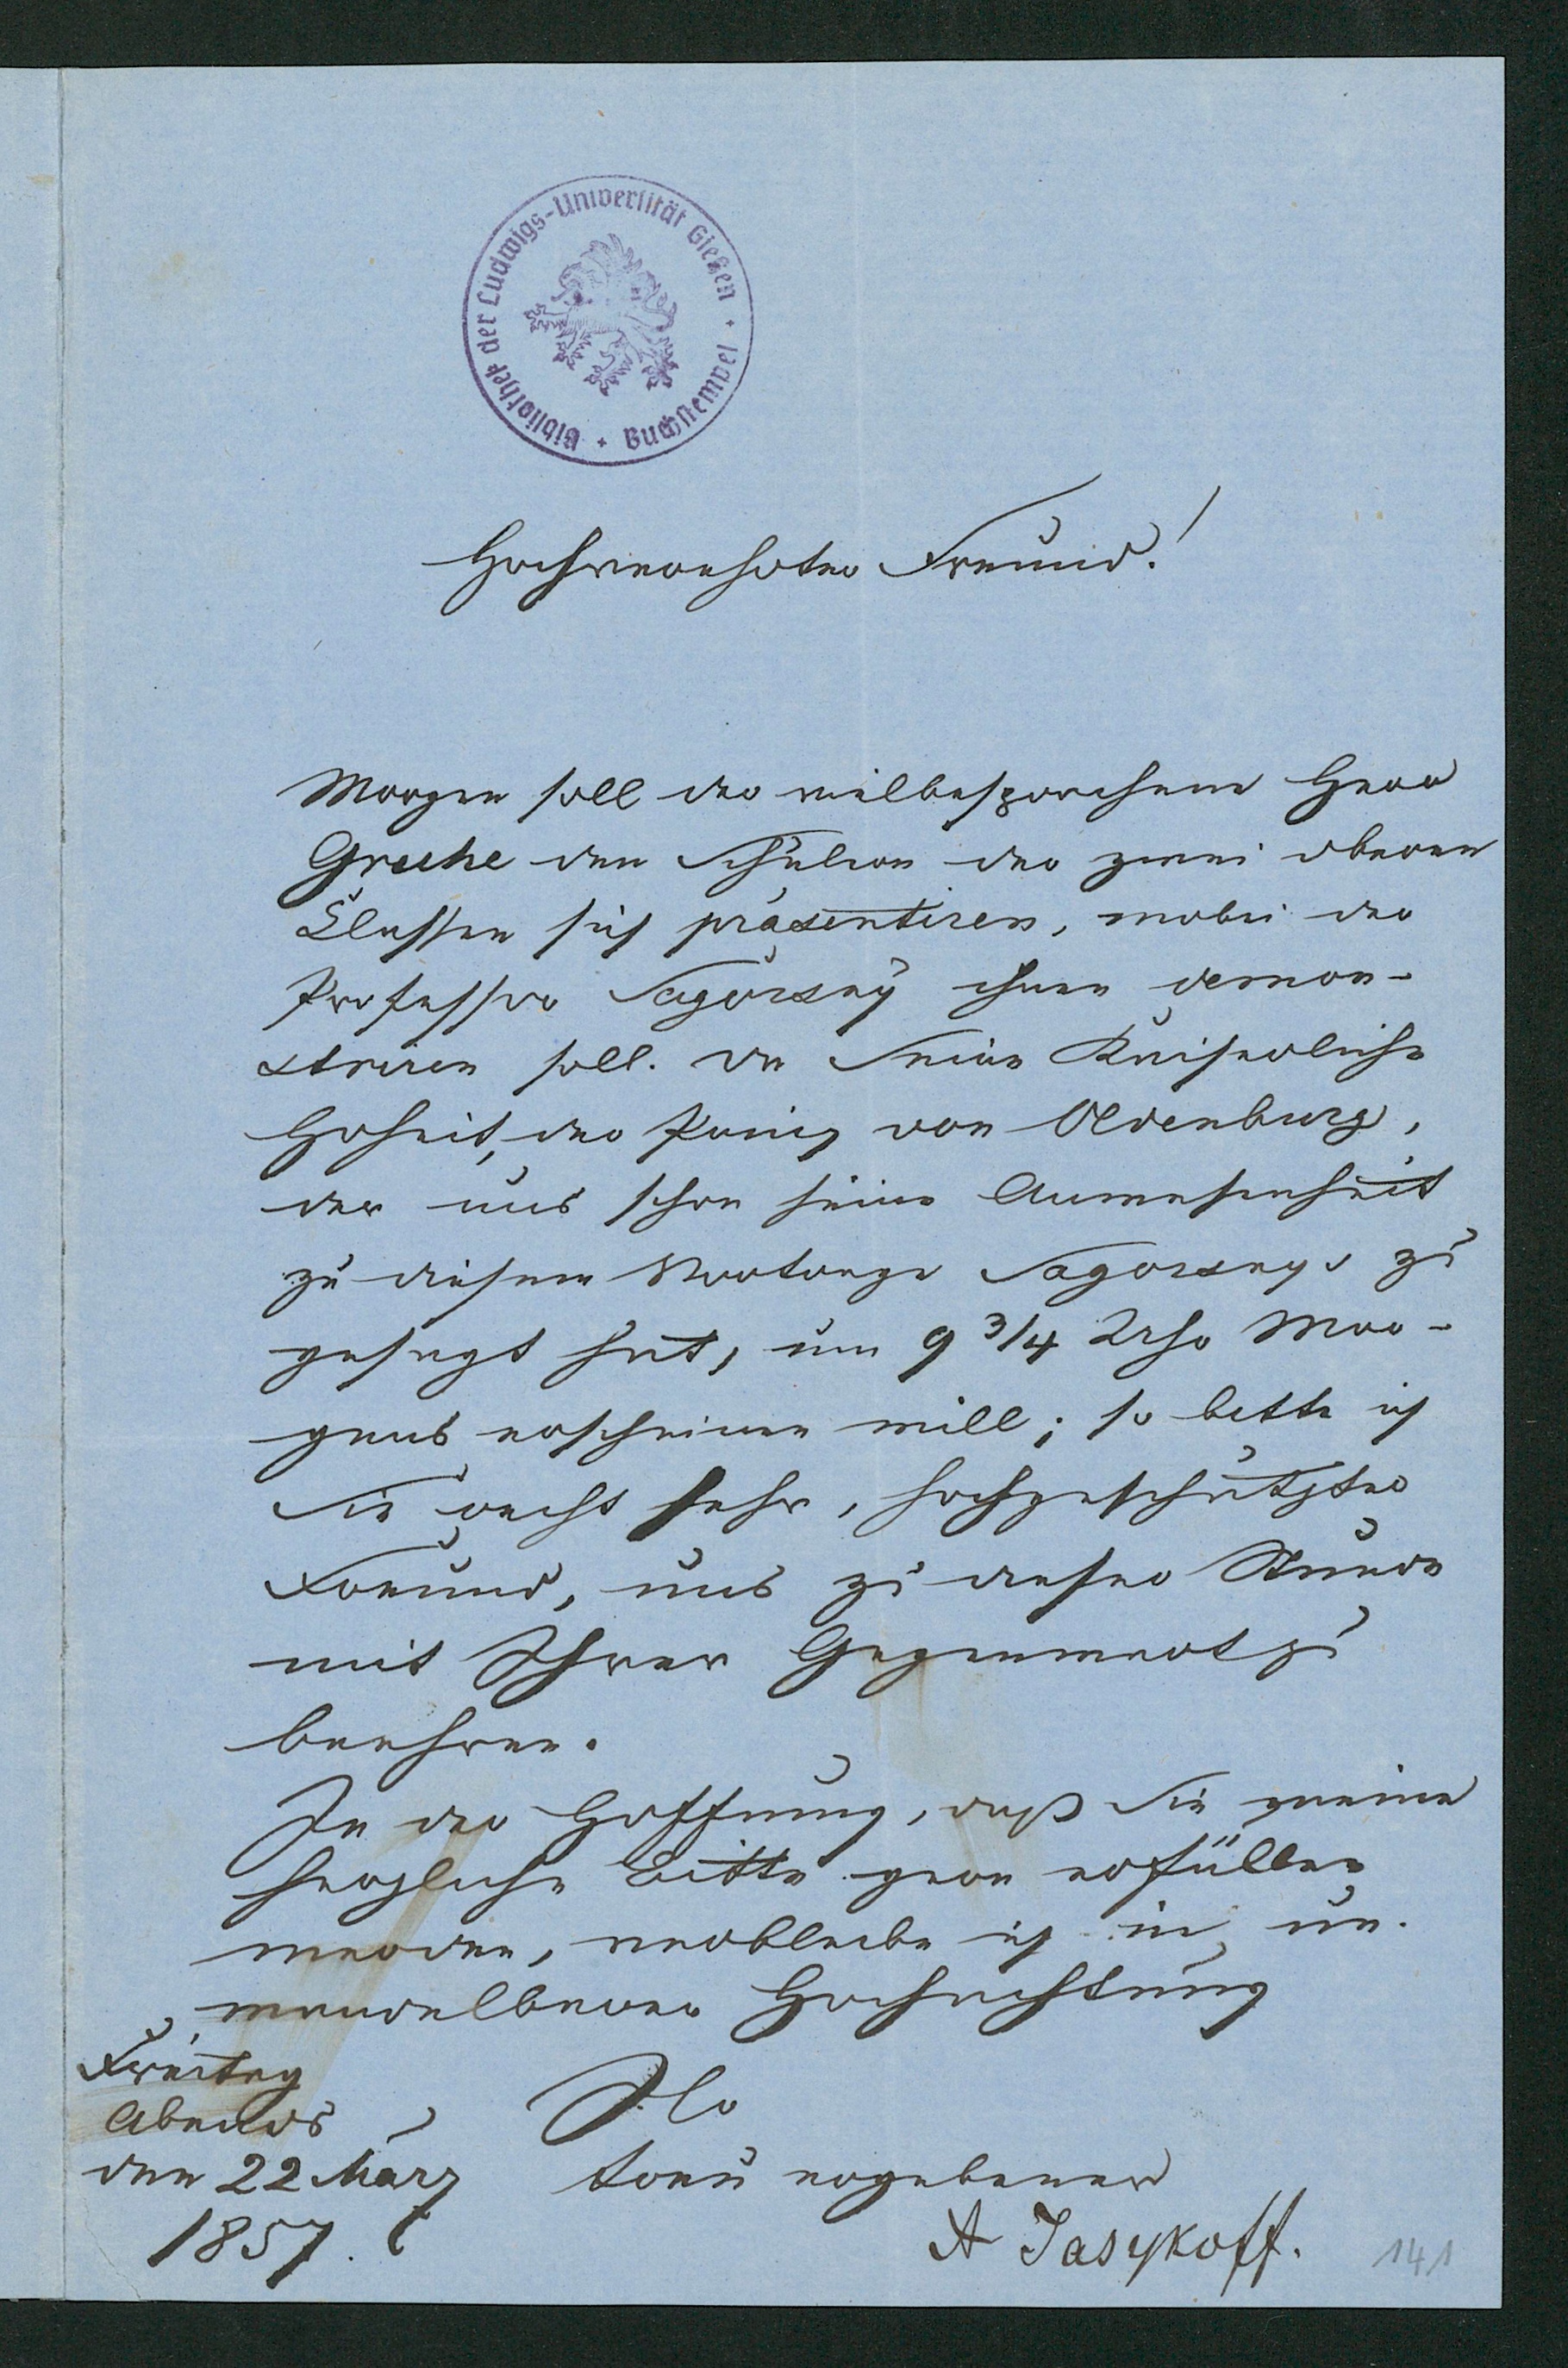 Bibliothek der Ludwigs-Universität Gießen + Buchstempel +
Hochverehrter Freund!
Morgen soll der vielbesprochene Herr
den Schülern der zwei oberen
Classen sich präsentiren, wobei der
Professor Sagorsky ihnen demon-
striren soll. Da Seine Kaiserliche
Hoheit, der Prinz von Oldenburg,
der uns schon seine Anwesenheit
zu diesem Vortrage Sagorskys zu
gesagt hat, um 9 3/4 Uhr Mor-
gens erscheinen will; so bitte ich
Sie recht sehr, hochgeschätzter
Freund, uns zu dieser Stunde
mit Ihrer Gegenwart zu
beehren.
In der Hoffnung, daß Sie meine
herzliche Bitte gern erfüllen
werden, verbleibe ich in un-
wandelbarer Hochachtung
Ihr
treu ergebener
A Jasykoff.
Freitag
Abends
den 22 März
1857.
141